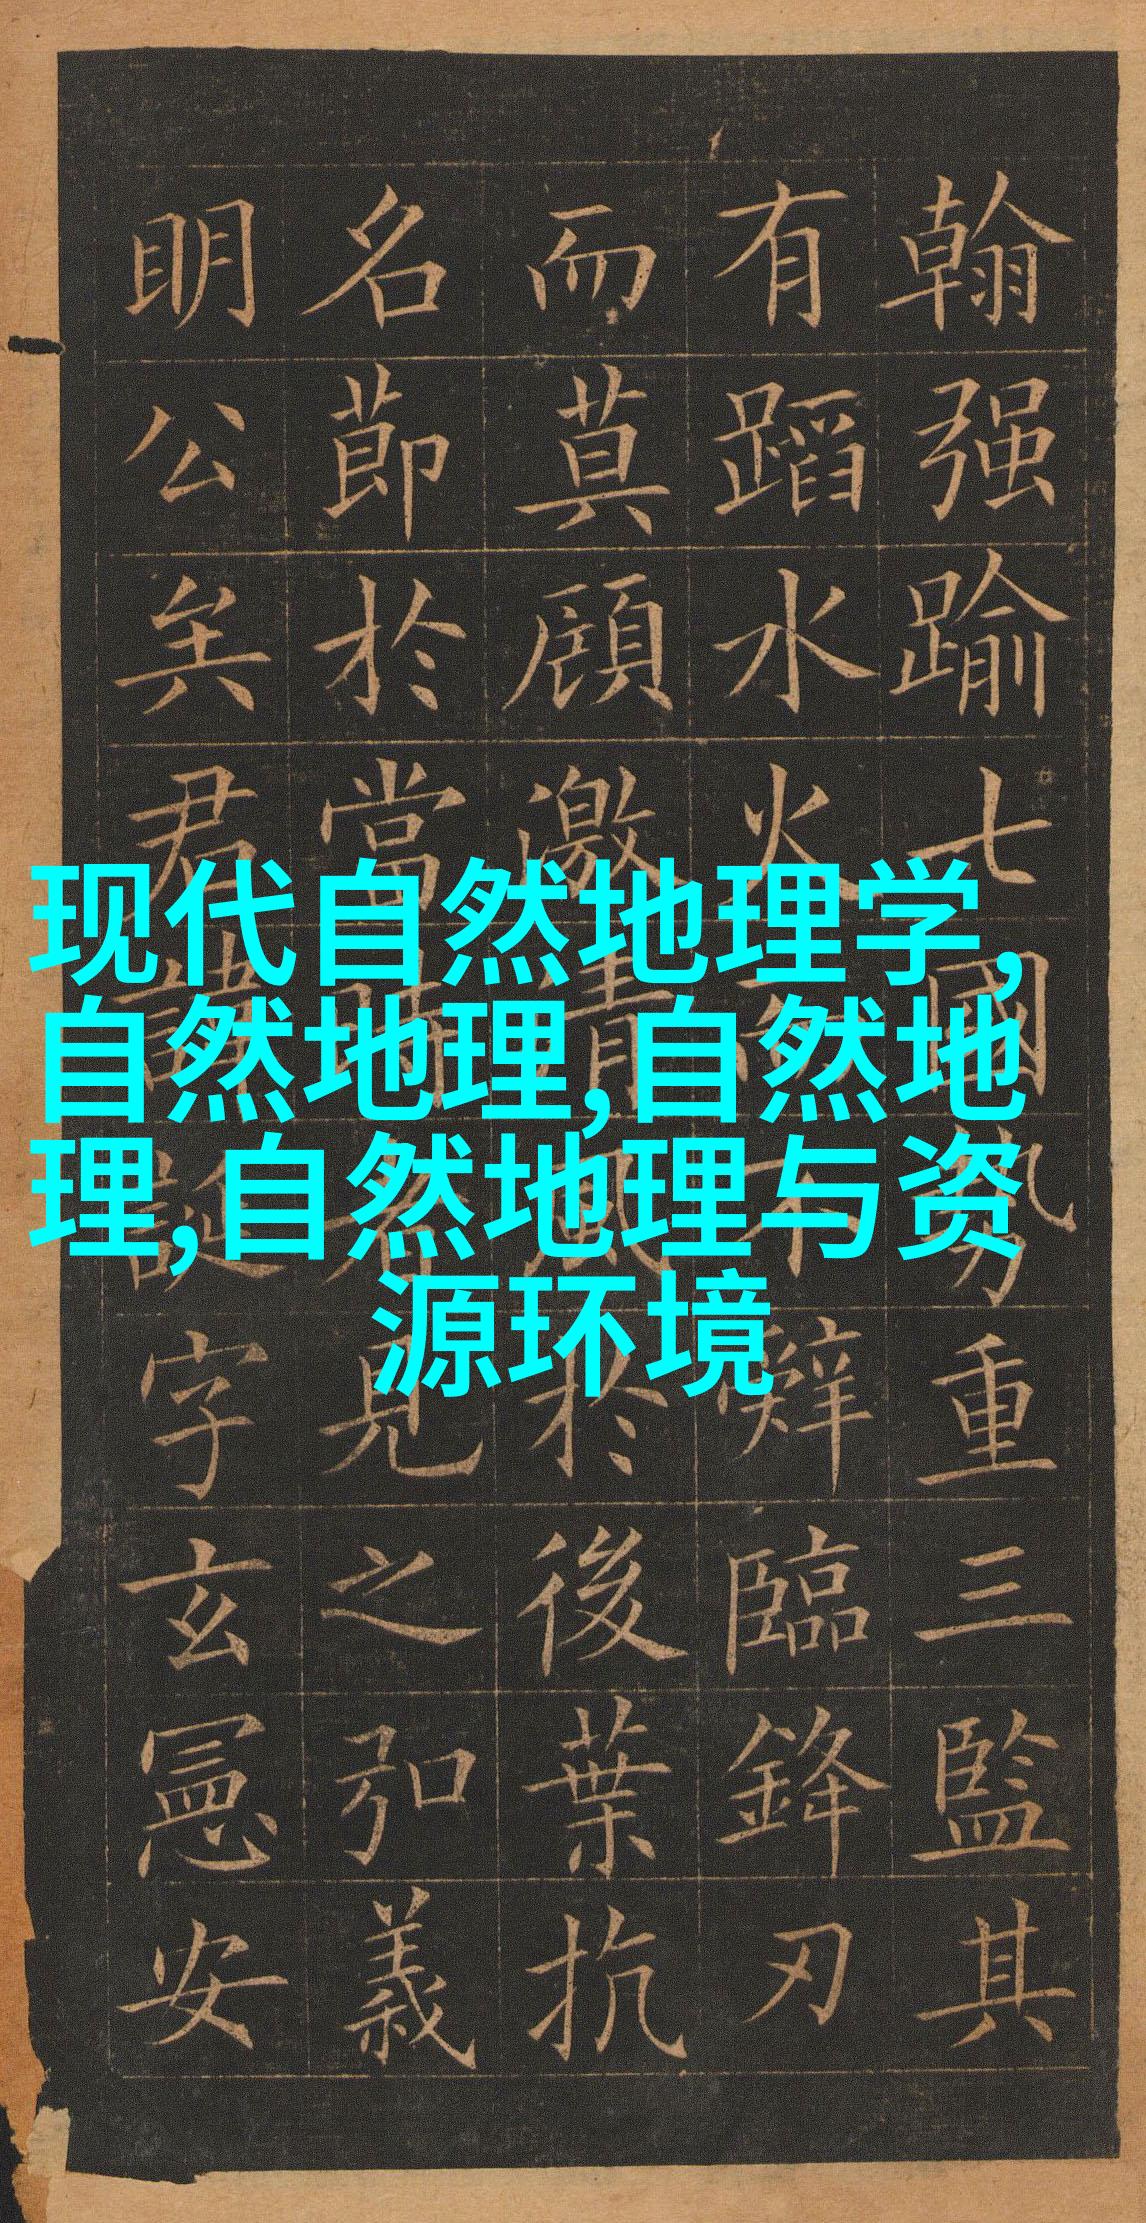 现代自然地理学,
自然地理,自然地
理,自然地理与资
源环境
翰强踰七國勢重三監其
有蹈水火而不辤臨鋒刃
而莫顧激清風於後葉抗
名莭於當時者見之弘義
明公矣君諱誕字玄憲安